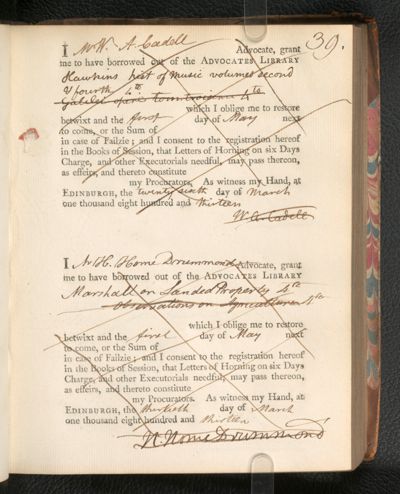 39.
I Mr W. A. Cadell Advocate, grant
me to have borrowed out of the ADVOCATES LIBRARY
Hawkins hist of Music volumes second
& fourth 4to
4to
which I oblige me to restore
betwixt and the first day of May next
to come, or the Sum of
in case of Failzie; and I consent to the registration hereof
in the Books of Session, that Letters of Horning on six Days
Charge, and other Executorials needful, may pass thereon,
as effeirs, and thereto constitute
my Procurators. As witness my Hand, at
EDINBURGH, the twenty sixth day of March
one thousand eight hundred and thirteen
W. A. Cadell
I Mr H. Home Drummond Advocate, grant
me to have borrowed out of the ADVOCATES LIBRARY
Marshall on Landed Property 4to
Observations on Agriculture 4to
which I oblige me to restore
betwixt and the first day of May next
to come, or the Sum of
in case of Failzie; and I consent to the registration hereof
in the Books of Session, that Letters of Horning on six Days
Charge, and other Executorials needful, may pass thereon,
as effeirs, and thereto constitute
my Procurators. As witness my Hand, at
EDINBURGH, the thirtieth day of March
one thousand eight hundred and thirteen
H. Home Drummond